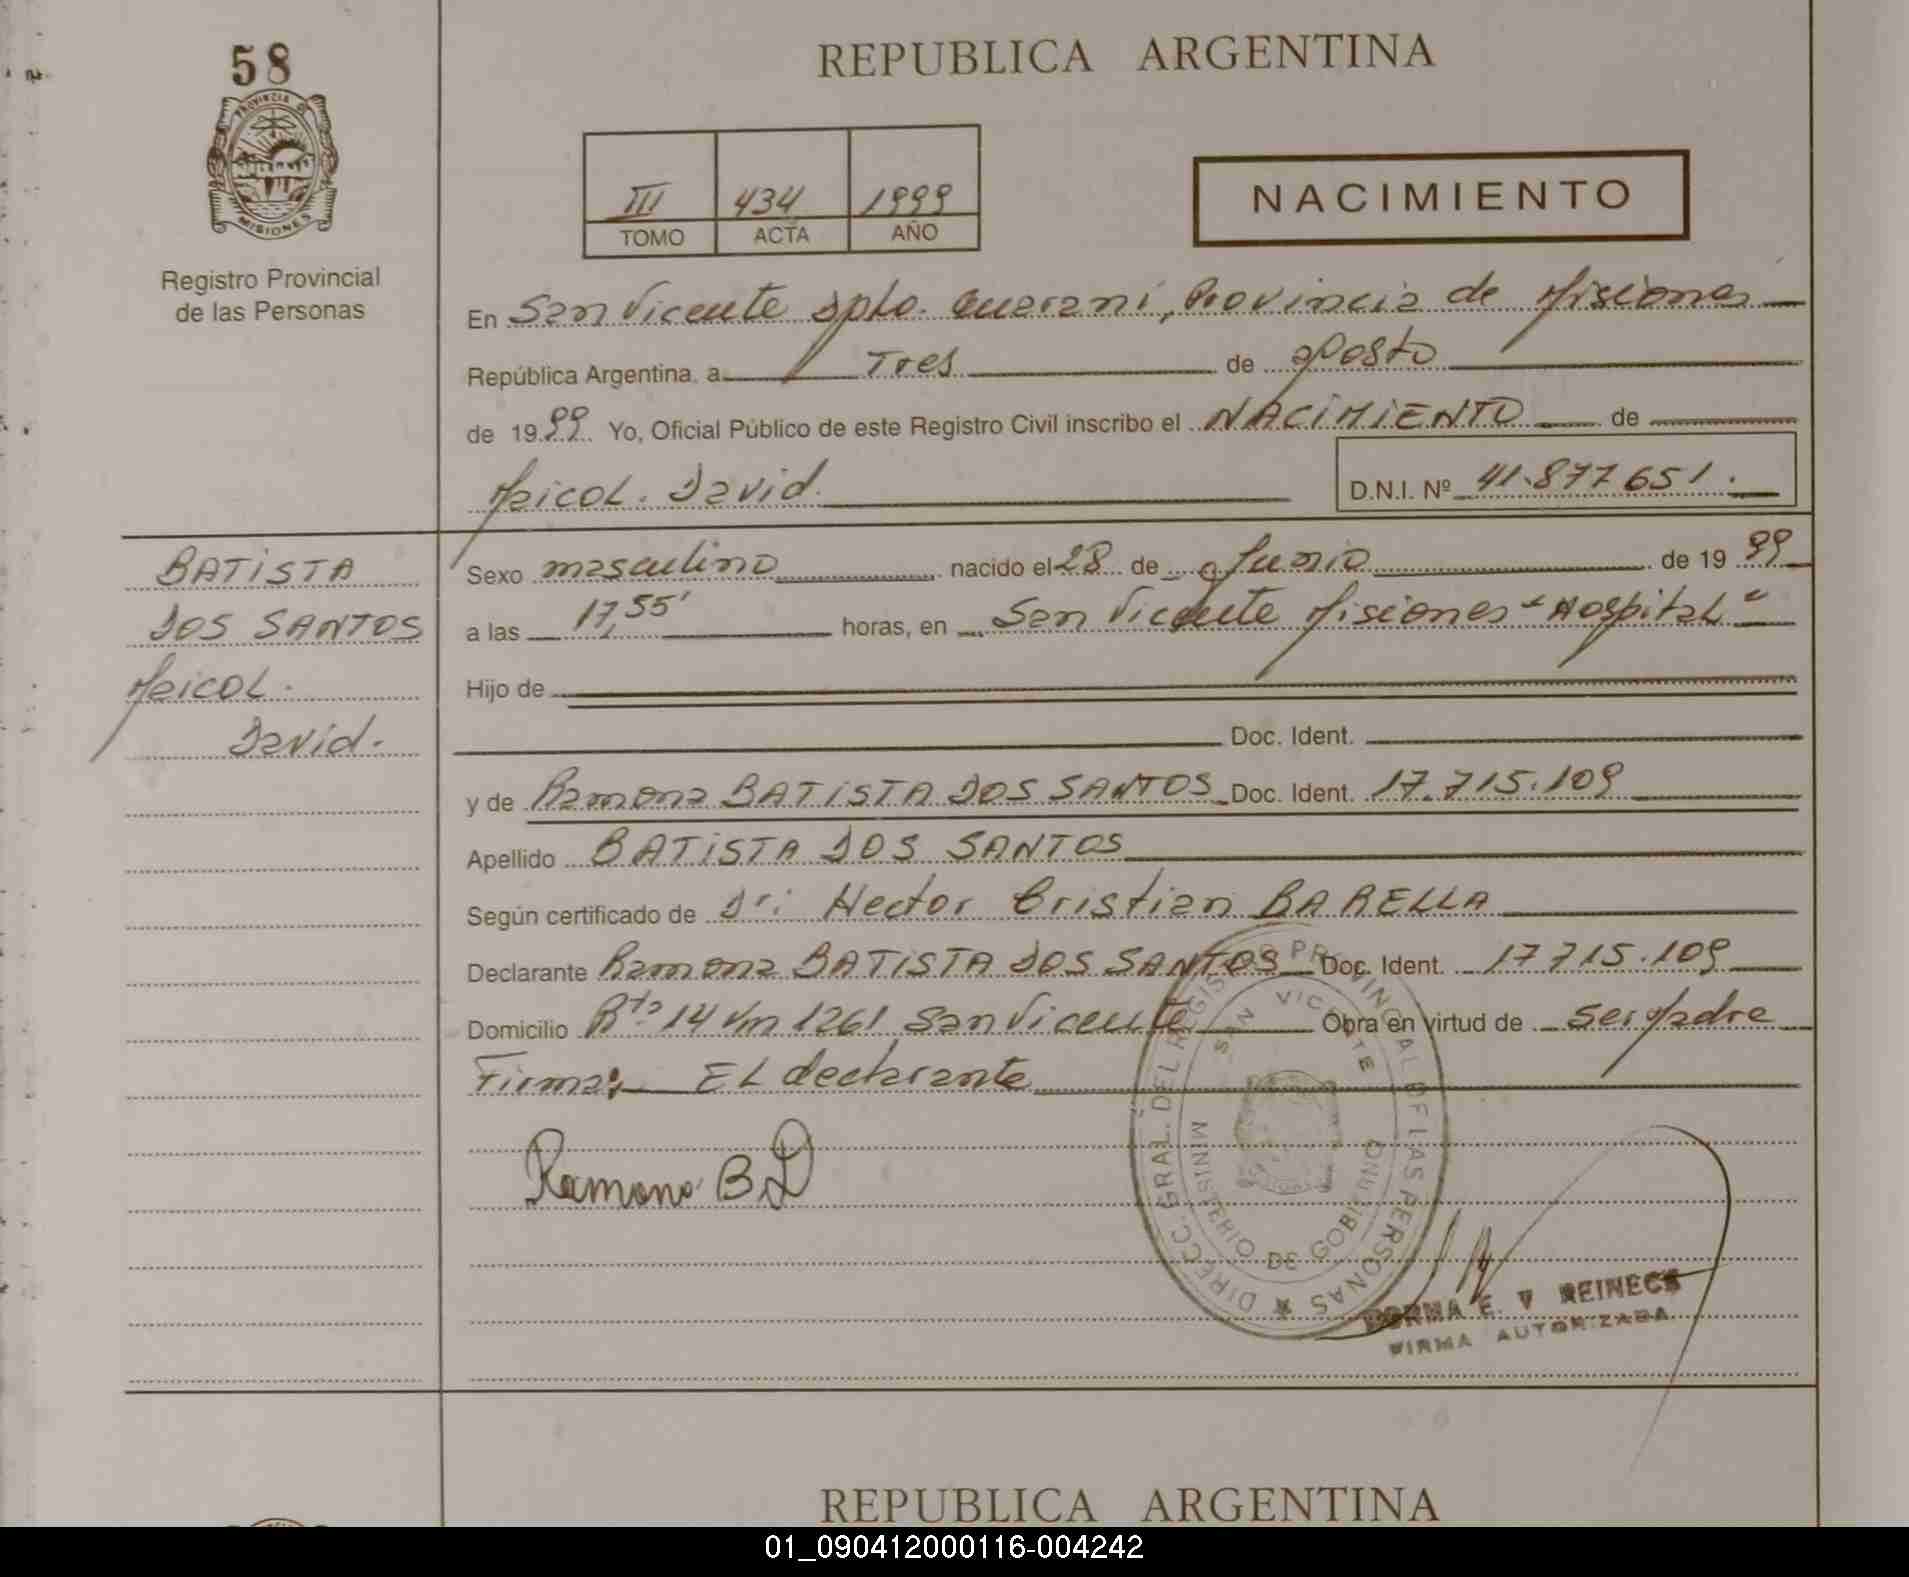 58
PROVINCIA DE
MISIONES
Registro Provincial
de las Personas
REPUBLICA ARGENTINA
III 434 1999
TOMO ACTA AÑO
NACIMIENTO
En San Vicente Dpto. Guaraní, Provincia de Misiones
República Argentina, a Tres de agosto
de 1999 Yo, Oficial Público de este Registro Civil inscribo el NACIMIENTO de
Maicol. David.
D.N.I. Nº 41.877651.
BATISTA
DOS SANTOS
Maicol.
David.
Sexo masculino nacido el 28 de Junio de 1999
a las 17,55' horas, en San Vicente Misiones "Hospital"
Hijo de
Doc. Ident.
y de Ramona BATISTA DOS SANTOS Doc. Ident. 17.715.109
Apellido BATISTA DOS SANTOS
Según certificado de Dr: Hector Cristian BARELLA
Declarante Ramona BATISTA DOS SANTOS Doc. Ident. 17715.109
Domicilio Rta 14 Km 1261 San Vicente Obra en virtud de ser Madre
Firma: EL declarante
Ramona B D
DIRECC. GRAL. DEL REGISTRO PROVINCIAL DE LAS PERSONAS
SAN VICENTE
MINISTERIO DE GOBIERNO
NORMA E. V REINECK
FIRMA AUTORIZADA
REPUBLICA ARGENTINA
01_090412000116-004242